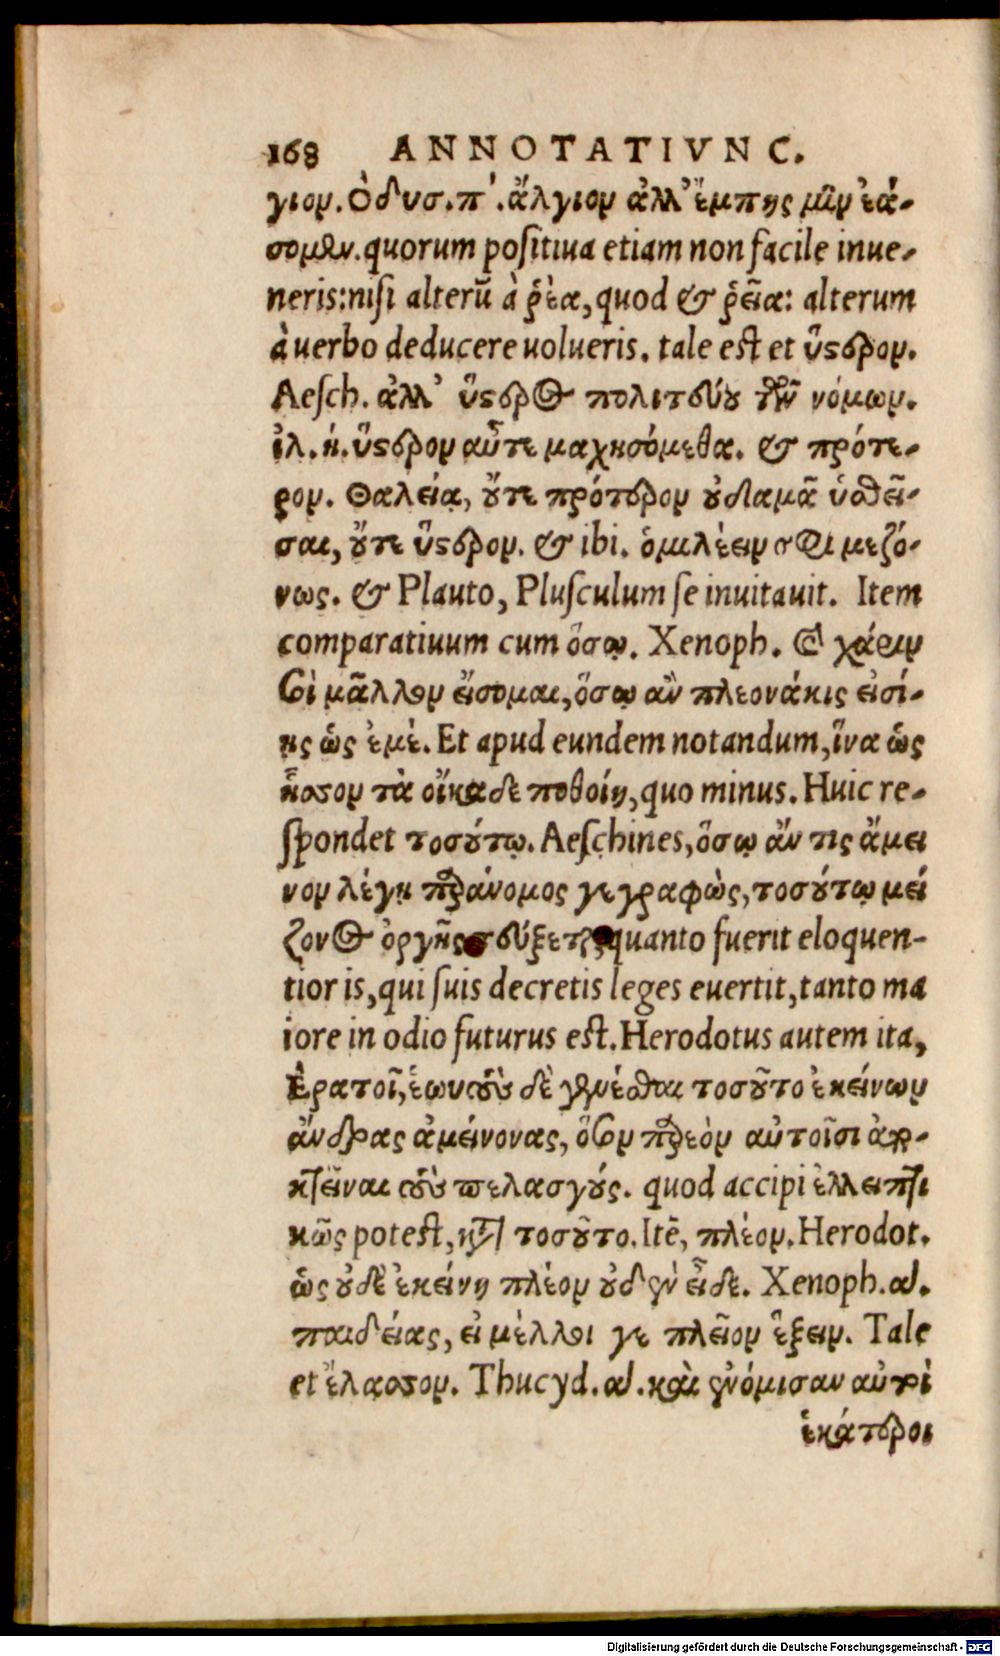 168 ANNOTATIVNC.
γιον. Ὀδυσ. π΄. ἄλγιον ἀλλ' ἔμπης μὶν ἐά-
σομεν. quorum positiua etiam non facile inue-
neris: nisi alterū à ῥέα, quod & ῥεῖα: alterum
à uerbo deducere uolueris. tale est et ὕστερον.
Aesch. ἀλλ' ὕστερος πολιτεύου τῶν νόμων.
ἰλ. κ. ὕστερον αὖτε μαχησόμεθα. & πρότε-
ρον. Θαλεία, οὔτε πρότερον οὐδαμᾶ
σαι, οὔτε ὕστερον. & ibi. ὁμιλέειν μεζό-
νως. & Plauto, Plusculum se inuitauit. Item
comparatiuum cum ὅσῳ. Xenoph. καὶ χάριν
σοὶ μᾶλλον εἴσομαι, ὅσῳ ἂν πλεονάκις εἰσί-
ῃς ὡς ἐμέ. Et apud eundem notandum, ἵνα ὡς
ἧσσον τὰ οἴκαδε ποθοίη, quo minus. Huic re-
spondet τοσούτῳ. Aeschines, ὅσῳ ἄν τις ἄμει
νον λέγῃ παράνομος γεγραφὼς, τοσούτῳ μεί
ζονος ὀργῆς τεύξεται, quanto fuerit eloquen-
tior is, qui suis decretis leges euertit, tanto ma
iore in odio futurus est. Herodotus autem ita,
Ἐρατοῖ, ἑωυτοὺς δὲ γενέσθαι τοσοῦτο ἐκείνων
ἄνδρας ἀμείνονας, ὅσον παρεὸν αὐτοῖσι ἀπο-
κτεῖναι τοὺς πελασγούς. quod accipi ἐλλειπτι
κῶς potest, κατὰ τοσοῦτο. Itē, πλέον. Herodot.
ὡς οὐδὲ ἐκείνη πλέον οὐδὲν εἶδε. Xenoph. α.
παιδείας, εἰ μέλλοι γε πλεῖον ἕξειν. Tale
et ἔλασσον. Thucyd. α. καὶ ἐνόμισαν αὐτοὶ
ἑκάτεροι
Digitalisierung gefördert durch die Deutsche Forschungsgemeinschaft - DFG